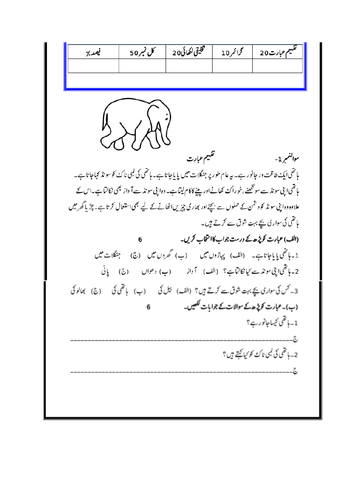 تفہیم عبارت 20 گرائمر 10 تخلیقی لکھائی 20 کل نمبر 50 فیصد %
سوالنمبر 1- تفہیم عبارت
ہاتھی ایک طاقت ور جانور ہے۔ یہ عام طور پر جنگلات میں پایا جاتا ہے۔ ہاتھی کی لمبی ناک کو سونڈ کہا جاتا ہے۔
ہاتھی اپنی سونڈ سے سونگھنے، خوراک کھانے اور پینے کا کام لیتا ہے۔ وہ اپنی سونڈ سے آواز بھی نکالتا ہے۔ اس کے
علاوہ وہ اپنی سونڈ کو دشمن کے حملوں سے بچنے اور بھاری چیزیں اٹھانے کے لیے بھی استعمال کرتا ہے۔ چڑیا گھر میں
ہاتھی کی سواری بچے بہت شوق سے کرتے ہیں۔
(الف) عبارت کو پڑھ کے درست جواب کا انتخاب کریں۔ 6
1۔ ہاتھی پایا جاتا ہے۔ (الف) پہاڑوں میں (ب) گھروں میں (ج) جنگلات میں
2۔ ہاتھی اپنی سونڈ سے کیا نکالتا ہے؟ (الف) آواز (ب) دھواں (ج) پانی
3۔ کس کی سواری بچے بہت شوق سے کرتے ہیں؟ (الف) بیل کی (ب) ہاتھی کی (ج) بھالو کی
(ب)۔ عبارت کو پڑھ کے سوالات کے جوابات لکھیں۔ 6
1۔ ہاتھی کیسا جانور ہے؟
ج
2۔ ہاتھی کی لمبی ناک کو کیا کہتے ہیں؟
ج